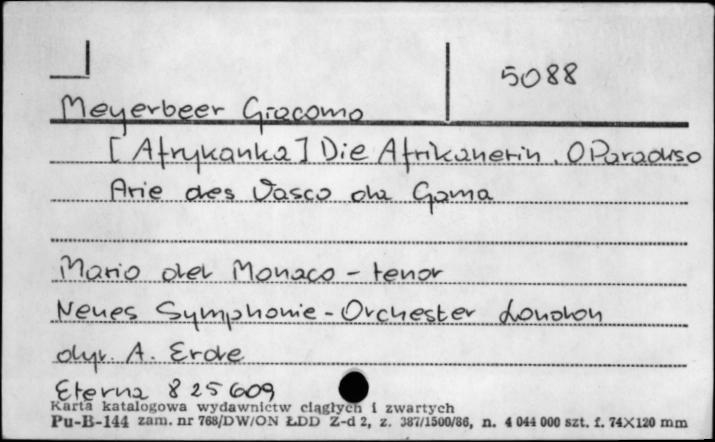 5088
Meyerbeer Giacomo
[Afrykanka] Die Afrikanerin. O Paradiso
Arie des Vasco da Gama
Mario del Monaco - tenor
Neues Symphonie-Orchester London
dyr. A. Erde
Eterna 825609
Karta katalogowa wydawnictw ciągłych i zwartych
Pu-B-144 zam. nr 768/DW/ON ŁDD Z-d 2, z. 387/1500/86, n. 4 044 000 szt. f. 74X120 mm